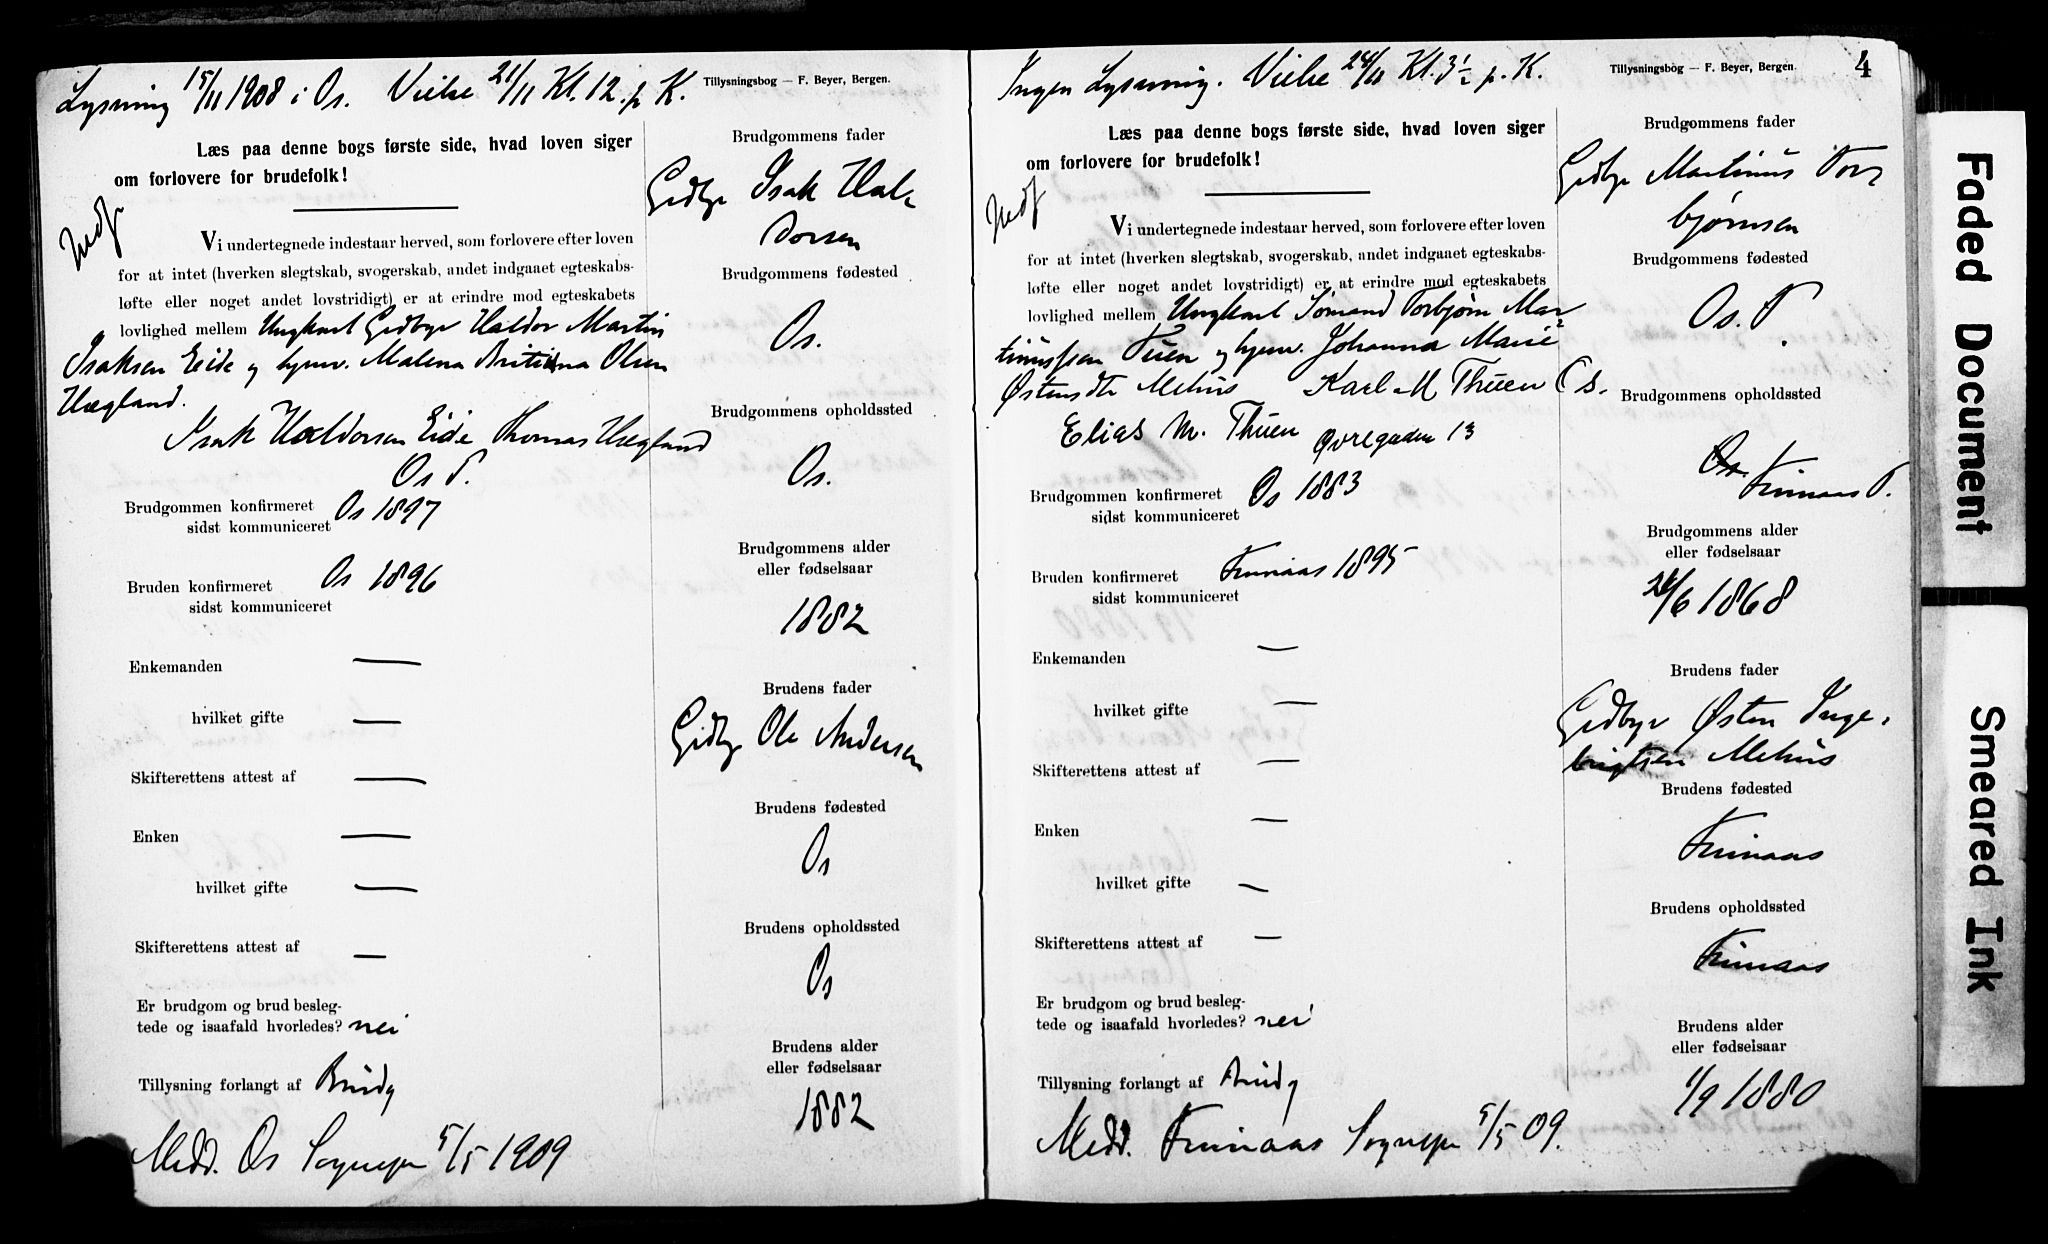 Lysning 15/11 1908 i Os. Vielse 21/11 Kl. 12. p K.
Tillysningsbog — F. Beyer, Bergen.
Læs paa denne bogs første side, hvad loven siger
om forlovere for brudefolk!
Indf
Vi undertegnede indestaar herved, som forlovere efter loven
for at intet (hverken slegtskab, svogerskab, andet indgaaet egteskabs-
løfte eller noget andet lovstridigt) er at erindre mod egteskabets
lovlighed mellem Ungkarl Grdbgr Haldor Martin
Isaksen Eide og hjmv. Malena Olsen
Hægland.
Isak Haldorsen Eide Thomas Hægland
Os P.
Brudgommen konfirmeret Os 1897
sidst kommuniceret
Bruden konfirmeret Os 1896
sidst kommuniceret
Enkemanden —
hvilket gifte —
Skifterettens attest af —
Enken —
hvilket gifte —
Skifterettens attest af —
Er brudgom og brud besleg-
tede og isaafald hvorledes? nei
Tillysning forlangt af Brudg
Medd. Os Sognepr 5/5 1909
Brudgommens fader
Isak Hal-
dorsen
Brudgommens fødested
Os.
Brudgommens opholdssted
Os.
Brudgommens alder
eller fødselsaar
1882
Brudens fader
Ole Andersen
Brudens fødested
Os
Brudens opholdssted
Os
Brudens alder
eller fødselsaar
1882
Ingen Lysning. Vielse 24/11 Kl. 3½ p. K.
Tillysningsbog — F. Beyer, Bergen.
4
Læs paa denne bogs første side, hvad loven siger
om forlovere for brudefolk!
Indf
Vi undertegnede indestaar herved, som forlovere efter loven
for at intet (hverken slegtskab, svogerskab, andet indgaaet egteskabs-
løfte eller noget andet lovstridigt) er at erindre mod egteskabets
lovlighed mellem Ungkarl Sømand Torbjørn Mar
tinussen Tuen og hjmv. Johanna Marie
Østensdtr Mehus Karl M Thuen Os.
Elias M. Thuen Øvregaden 13
Brudgommen konfirmeret Os 1883
sidst kommuniceret
Bruden konfirmeret Finnaas 1895
sidst kommuniceret
Enkemanden —
hvilket gifte —
Skifterettens attest af —
Enken —
hvilket gifte —
Skifterettens attest af —
Er brudgom og brud besleg-
tede og isaafald hvorledes? nei
Tillysning forlangt af Brudg
Medd. Finnaas Sognepr 5/5 09.
Brudgommens fader
Martinus Tor-
bjørnsen
Brudgommens fødested
Os. P.
Brudgommens opholdssted
Os.
Finnaas P.
Brudgommens alder
eller fødselsaar
/6 1868
Brudens fader
Østen Inge-
brigtsen Mehus
Brudens fødested
Finnaas
Brudens opholdssted
Finnaas
Brudens alder
eller fødselsaar
1/9 1880
Faded Document
Smeared Ink